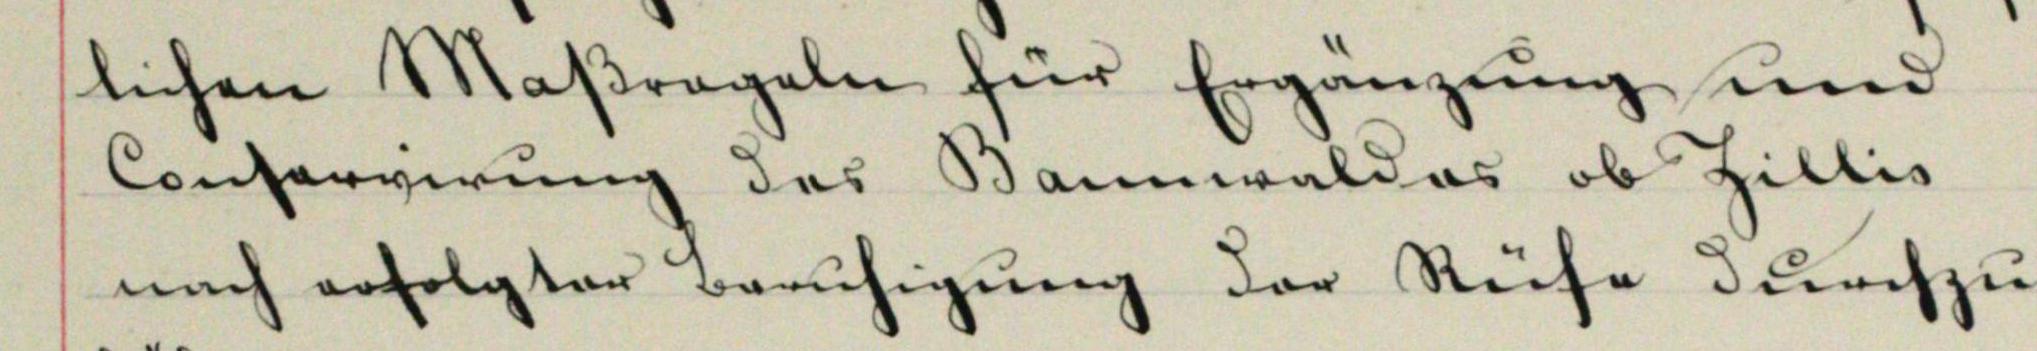 lichen Maßregeln für Ergänzung und
Conservirung des Bannwaldes ob Zillis
nach erfolgter Beruhigung der Rüfe durchzu